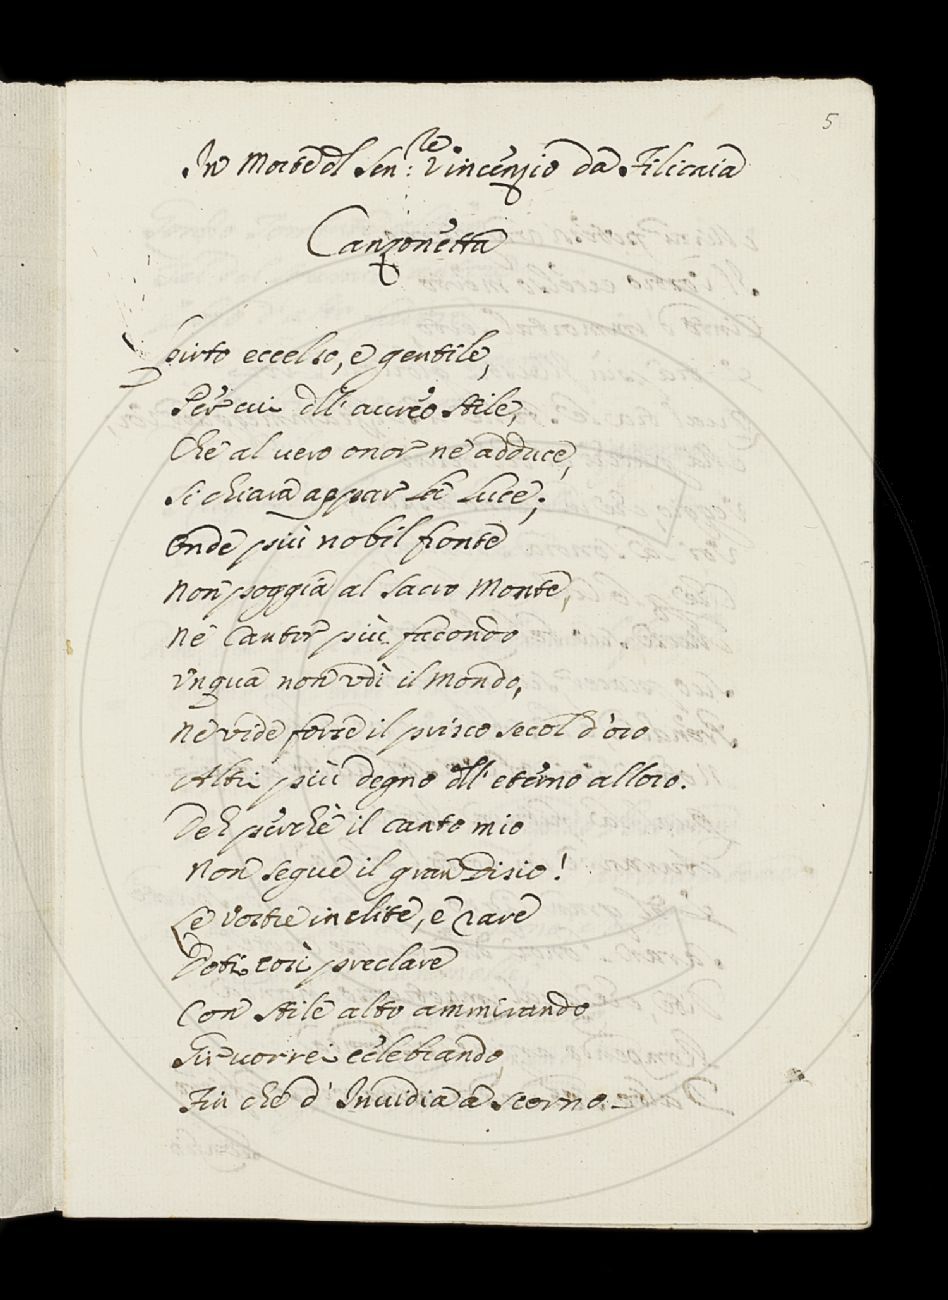 5
In Morte del Sen:re Vincenzio da Filicaia
Canzonetta
Spirto eccelso, e gentile,
Per cui dell'aureo stile,
Che al vero onor ne adduce,
Si chiara appar la luce;
Onde più nobil fronte
Non poggia al sacro Monte,
Ne Cantor più facondo
Unqua non udì il Mondo,
Ne vide forse il prisco secol d'oro
Altri più degno dell'eterno alloro.
Deh perchè il canto mio
Non segue il gran Disio!
Le vostre inclite, e rare
Doti così preclare
Con stile alto ammirando
Gir vorrei celebrando,
Fin che d'Invidia a scorno